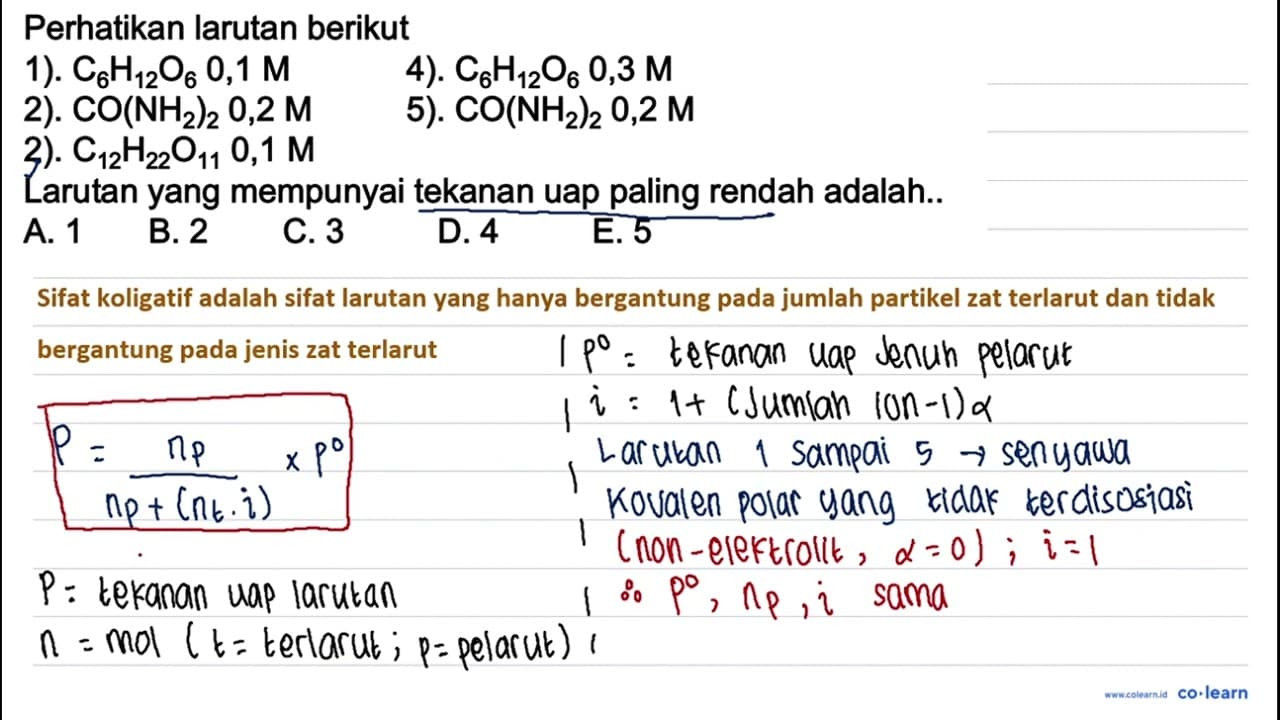 Perhatikan larutan berikut
1). C₆H₁₂O₆ 0,1 M 4). C₆H₁₂O₆ 0,3 M
2). CO(NH₂)₂ 0,2 M 5). CO(NH₂)₂ 0,2 M
2). C₁₂H₂₂O₁₁ 0,1 M
Larutan yang mempunyai tekanan uap paling rendah adalah..
A. 1 B. 2 C. 3 D. 4 E. 5
Sifat koligatif adalah sifat larutan yang hanya bergantung pada jumlah partikel zat terlarut dan tidak
bergantung pada jenis zat terlarut
P = np / (np + (nt . i)) x P°
P = tekanan uap larutan
n = mol (t = terlarut ; p = pelarut)
P° = tekanan uap Jenuh pelarut
i = 1 + (Jumlah ion - 1) α
Larutan 1 sampai 5 → senyawa
Kovalen polar yang tidak terdisosiasi
(non-elektrolit, α = 0) ; i = 1
∴ P°, np, i sama
www.colearn.id co·learn